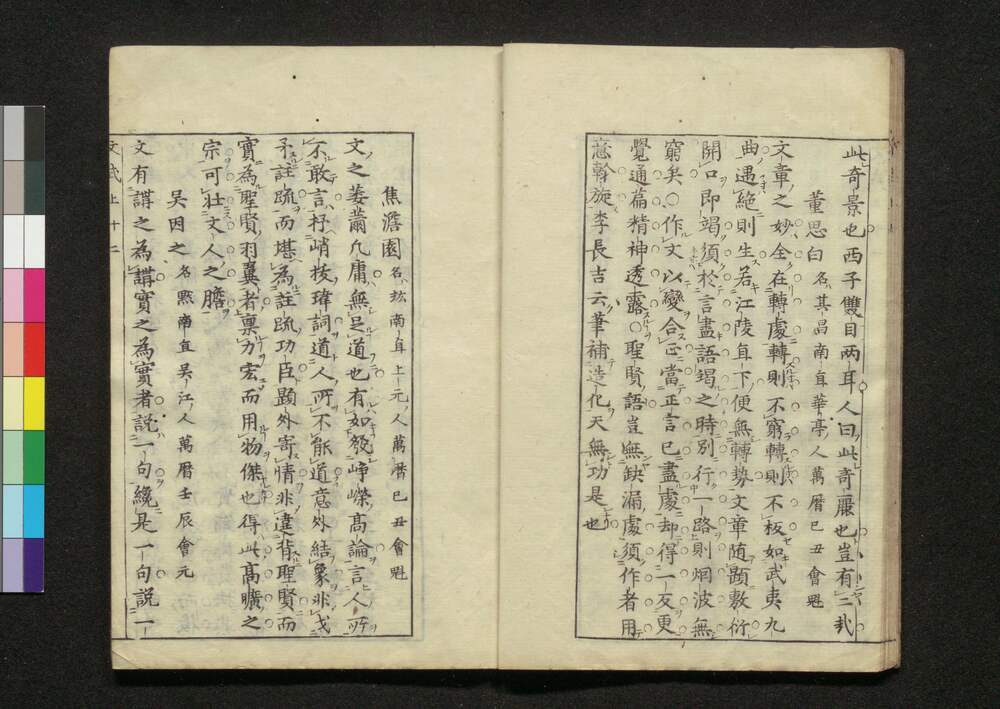 此奇景也西子雙目兩耳人曰此奇麗也豈有二哉
董思白名其昌南直華亭人萬曆己丑會魁
文章之妙全在轉處轉則不窮轉則不板如武夷九
曲遇絕則生若江陵直下便無轉勢文章随題敷衍
開口即竭須於言盡語竭之時別行一路則烟波無
窮矣○作文以變合正當正言已盡處却得一反更
覺通篇精神透露○聖賢語豈無缺漏處須作者用
意斡旋李長吉云筆補造化天無功是也
焦澹園名竑南直上元人萬曆己丑會魁
文之萎薾凡庸無足道也有如發崢嶸高論言人所
不敢言杼峭拔瑋詞道人所不能道意外結象非戔
予註疏而堪為註疏功臣題外寄情非違背聖賢而
實為聖賢羽翼者稟力宏而用物傑也得此高曠之
宗可壯文人之膽
吳因之名默南直吳江人萬曆壬辰會元
文有講之為講實之為實者説一句纔是一句説一
文式上十二